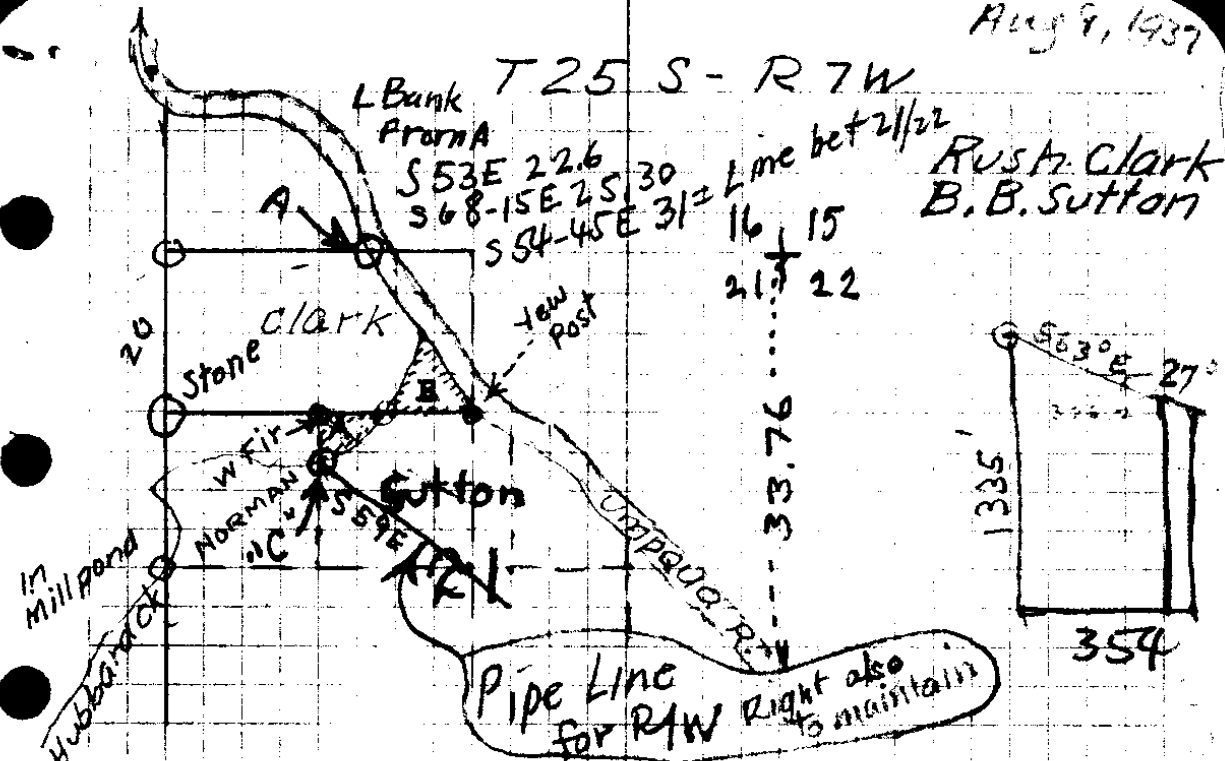 Aug 9, 1937
T 25 S - R 7 W
L Bank
From A
S 53 E 22.6
S 68-15 E 25.30
S 54-45 E 31± Line bet 21/22
Rush Clark
B.B. Sutton
A
16 15
21 22
Clark
20
Stone
yew
Post
B
A
W Fir
NORMAN
"C"
S 59 E
Sutton
Umpqua R.
33.76
In
Mill pond
Hubbard Ck
Pipe Line
for R/W
Right also
to maintain
S 63° E
27°
1335'
354